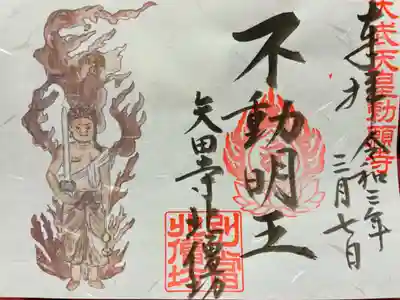 天武天皇勅願寺
奉拝
令和三年
三月七日
不動明王
矢田寺北僧坊